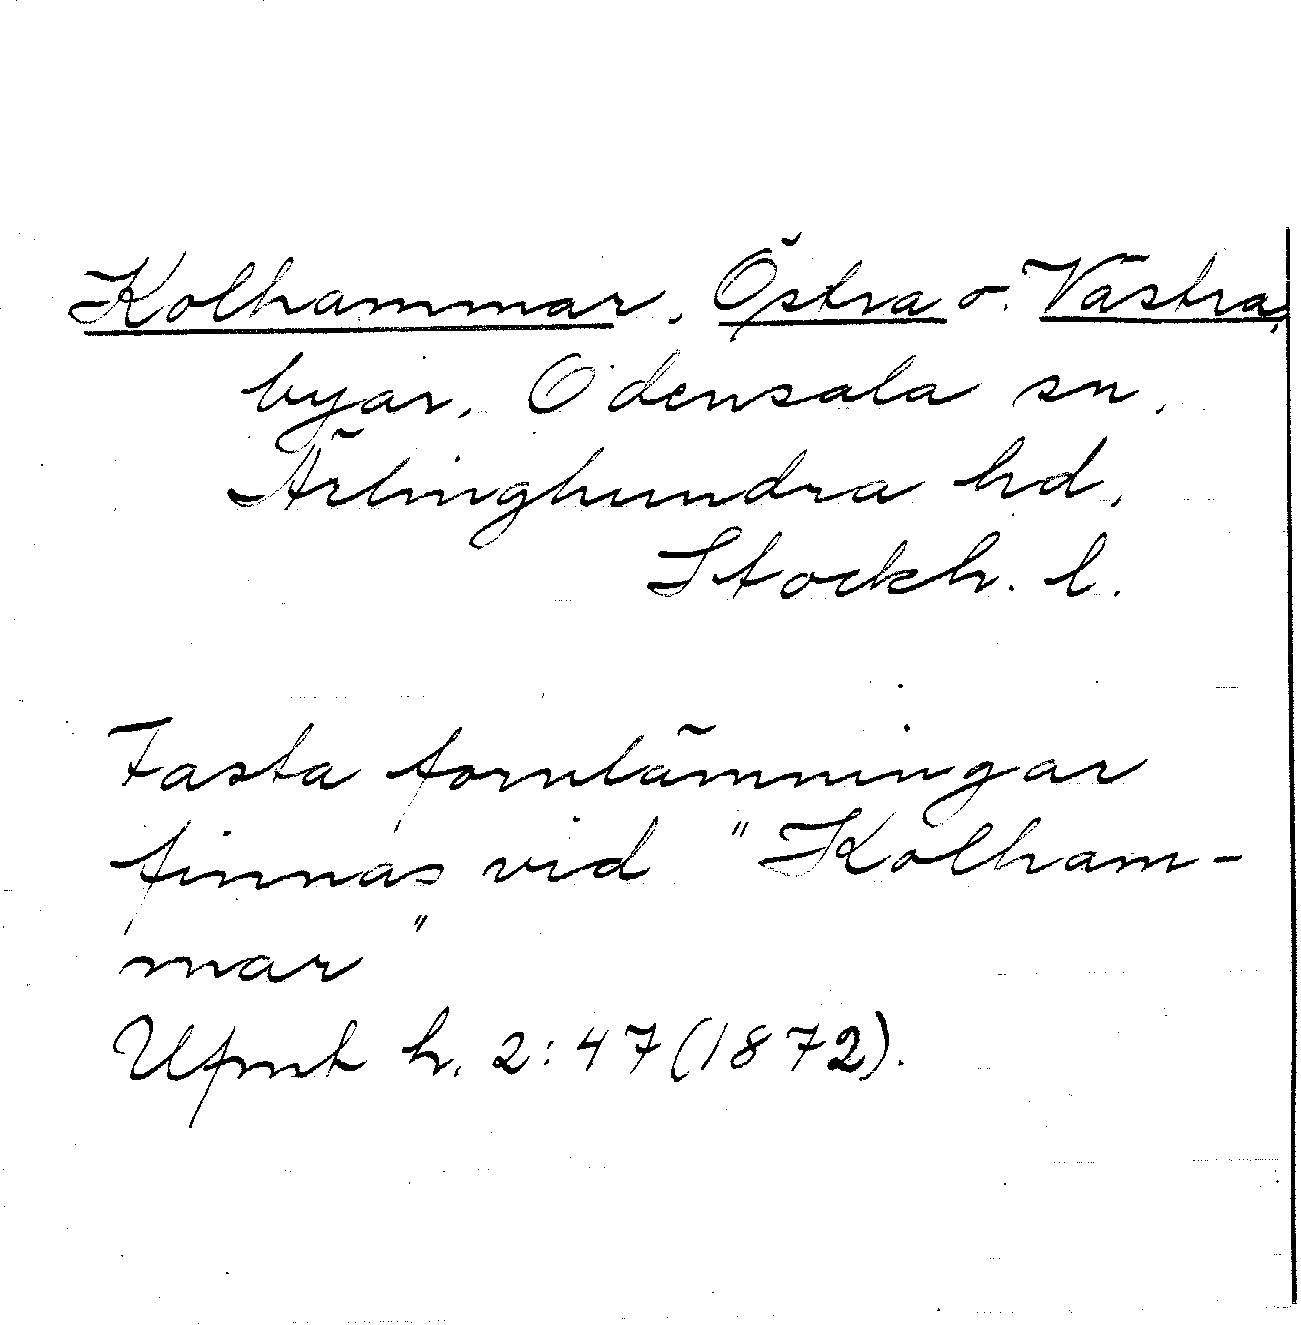 Kolhammar, Östra o. Västra,
byar, Odensala sn,
Ärlinghundra hd,
Stockh. l.
Fasta fornlämningar
finnas vid "Kolham-
mar"
Ufmt h. 2:47(1872).